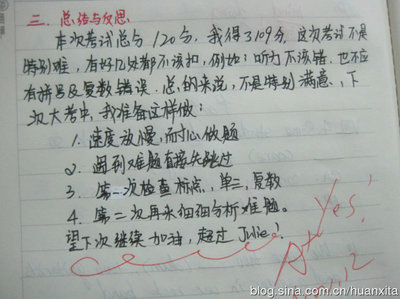 三. 总结与反思
本次考试总分120分, 我得了109分. 这次考试不是
特别难, 有好几处都不该扣, 例如: 听力不该错. 也不应
有拼写及复数错误. 总的来说, 不是特别满意, 下
次大考中, 我准备这样做:
1. 速度放慢, 耐心做题
2. 遇到难题直接先跳过
3. 第一次检查标点, 单三, 复数
4. 第二次再来细细分析难题。
望下次继续加油, 超过 Julie!
Yes!
A+
blog.sina.com.cn/huanxita